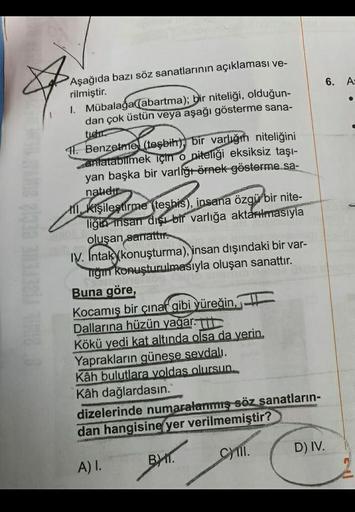 Aşağıda bazı söz sanatlarının açıklaması ve-
rilmiştir.
I. Mübalağa (abartma); bir niteliği, olduğun-
dan çok üstün veya aşağı gösterme sana-
tıdır.
II. Benzetme (teşbih); bir varlığın niteliğini
anlatabilmek için o niteliği eksiksiz taşı-
yan başka bir varlığı örnek gösterme sa-
natıdır.
III. Kişileştirme (teşhis), insana özgü bir nite-
liğin insan dışı bir varlığa aktarılmasıyla
oluşan sanattır.
IV. İntak (konuşturma), insan dışındaki bir var-
lığın konuşturulmasıyla oluşan sanattır.
Buna göre,
Kocamış bir çınar gibi yüreğin, II
Dallarına hüzün yağar. III
Kökü yedi kat altında olsa da yerin,
Yaprakların güneşe sevdalı.
Kâh bulutlara yoldaş olursun,
Kâh dağlardasın.
dizelerinde numaralanmış söz sanatların-
dan hangisine yer verilmemiştir?
A) I. B) II. C) III. D) IV.
6. A